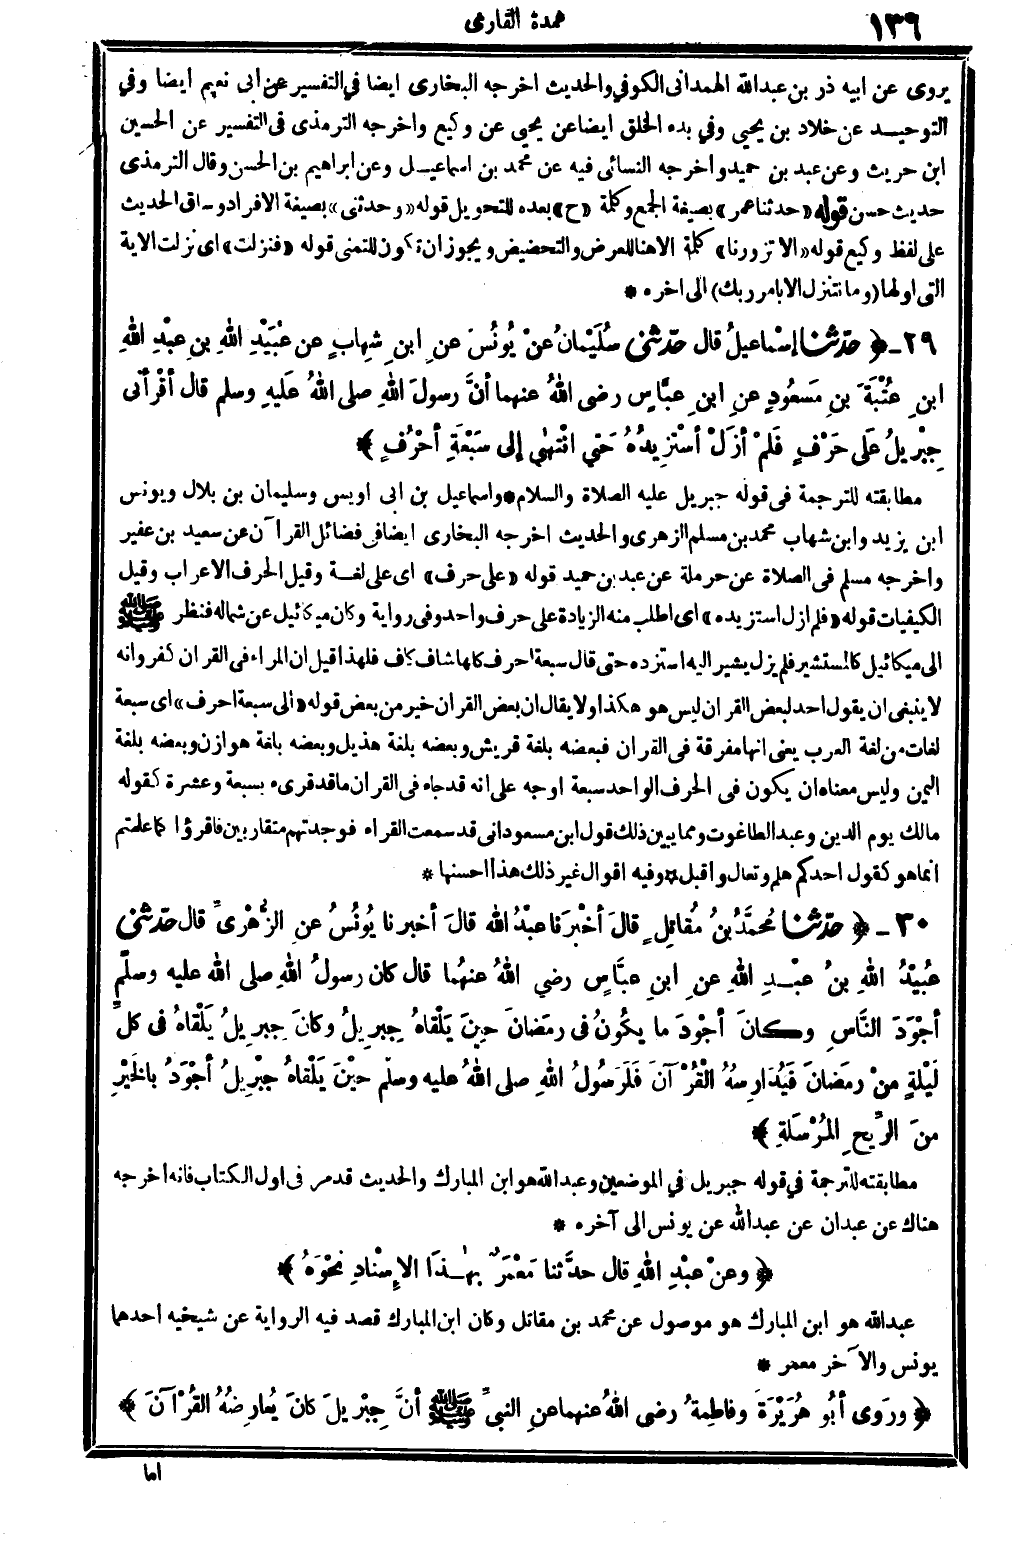 ١٣٩
عمدة القارى
يروى عن ابيه ذر بن عبدالله الهمدانى الكوفي والحديث اخرجه البخارى ايضا في التفسير عن ابى نعيم ايضا وفي
التوحيد عن خلاد بن يحيي وفي بدء الخلق ايضا عن يحيي عن وكيع واخرجه الترمذى فى التفسير عن الحسين
ابن حريث وعن عبد بن حميد واخرجه النسائى فيه عن محمد بن اسماعيل وعن ابراهيم بن الحسن وقال الترمذى
حديث حسن قوله «حدثنا عمر» بصيغة الجمع وكلمة «ح» بعده للتحويل قوله «وحدثنى» بصيغة الافراد وساق الحديث
على لفظ وكيع قوله «الا تزورنا» كلمة الا هنا للعرض والتحضيض ويجوز ان تكون للتمنى قوله «فنزلت» اى نزلت الاية
التى اولها (وما نتنزل الا بامر ربك) الى اخره *
٢٩ـ ﴿ حَدَّثَنَا إِسْمَاعِيلُ قال حَدَّثَنِى سُلَيْمَانُ عنْ يُونُسَ عنِ ابنِ شِهابٍ عن عُبَيْدِ اللهِ بنِ عبْدِ اللهِ
ابنِ عُتْبَةَ بنِ مَسْعُودٍ عنِ ابنِ عبَّاسٍ رضى اللهُ عنهما أنَّ رسولَ اللهِ صلى اللهُ عَليهِ وسلم قال أقْرأنى
جِبْريلُ عَلَى حَرْفٍ فَلَمْ أزَلْ أسْتَزِيدُهُ حَتي انْتَهٰي إلى سَبْعَةِ أحْرُفٍ ﴾
مطابقته للترجمة فى قوله جبريل عليه الصلاة والسلام * واسماعيل بن ابى اويس وسليمان بن بلال ويونس
ابن يزيد وابن شهاب محمد بن مسلم الزهرى والحديث اخرجه البخارى ايضا فى فضائل القرآن عن سعيد بن عفير
واخرجه مسلم فى الصلاة عن حرملة عن عبد بن حميد قوله «على حرف» اى على لغة وقيل الحرف الاعراب وقيل
الكيفيات قوله «فلم ازل استزيده» اى اطلب منه الزيادة على حرف واحد وفى رواية وكان ميكائيل عن شماله فنظر ﷺ
الى ميكائيل كالمستشير فلم يزل يشير اليه استزده حتى قال سبعة احرف كلها شاف كاف فلهذا قيل ان المراء فى القران كفر وانه
لا ينبغى ان يقول احد لبعض القران ليس هو هكذا ولا يقال ان بعض القران خير من بعض قوله «الى سبعة احرف» اى سبعة
لغات من لغة العرب يعنى انها مفرقة فى القران فبعضه بلغة قريش وبعضه بلغة هذيل وبعضه بلغة هوازن وبعضه بلغة
اليمن وليس معناه ان يكون فى الحرف الواحد سبعة اوجه على انه قد جاء فى القران ما قد قرىء بسبعة وعشرة كقوله
مالك يوم الدين وعبد الطاغوت ومما يبين ذلك قول ابن مسعود انى قد سمعت القراء فوجدتهم متقاربين فاقرؤا كما علمتم
انما هو كقول احدكم هلم وتعال واقبل * وفيه اقوال غير ذلك هذا احسنها *
٣٠ ـ ﴿ حَدَّثَنَا مُحَمَّدُ بنُ مُقاتِلٍ قالَ أخْبَرَنا عبْدُ الله قالَ أخبرنا يُونُسُ عنِ الزُّهْرِىِّ قال حَدَّثَنِى
عُبَيْدُ اللهِ بنُ عبْدِ اللهِ عنِ ابنِ عبَّاسٍ رضي اللهُ عنهُما قال كان رسولُ اللهِ صلى الله عليه وسلَّم
أجْوَدَ النَّاسِ وكانَ أجْوَدَ ما يكُونُ فى رمَضانَ حِينَ يَلْقاهُ جِبريلُ وكانَ جِبريلُ يَلْقاهُ فى كلِّ
لَيْلَةٍ منْ رمضَانَ فَيُدَارِسُهُ القُرْآنَ فَلَرَسُولُ اللهِ صلى اللهُ عليه وسلَّم حيْنَ يَلْقاهُ جبْريلُ أجْوَدُ بالخَيْرِ
منَ الرِّيحِ المُرْسَلَةِ ﴾
مطابقته للترجمة في قوله جبريل في الموضعين وعبدالله هو ابن المبارك والحديث قد مر فى اول الكتاب فانه اخرجه
هناك عن عبدان عن عبدالله عن يونس الى آخره *
﴿ وعنْ عبْدِ اللهِ قال حدَّثنا مَعْمَرٌ بهٰذَا الإِسْنادِ نحْوَهُ ﴾
عبدالله هو ابن المبارك هو موصول عن محمد بن مقاتل وكان ابن المبارك قصد فيه الرواية عن شيخيه احدهما
يونس والآخر معمر *
﴿ ورَوى أبُو هُرَيْرَةَ وفاطِمةُ رضى اللهُ عنهما عنِ النبيِّ ﷺ أنَّ جِبْريلَ كانَ يُعارِضُهُ القُرْآنَ ﴾
اما